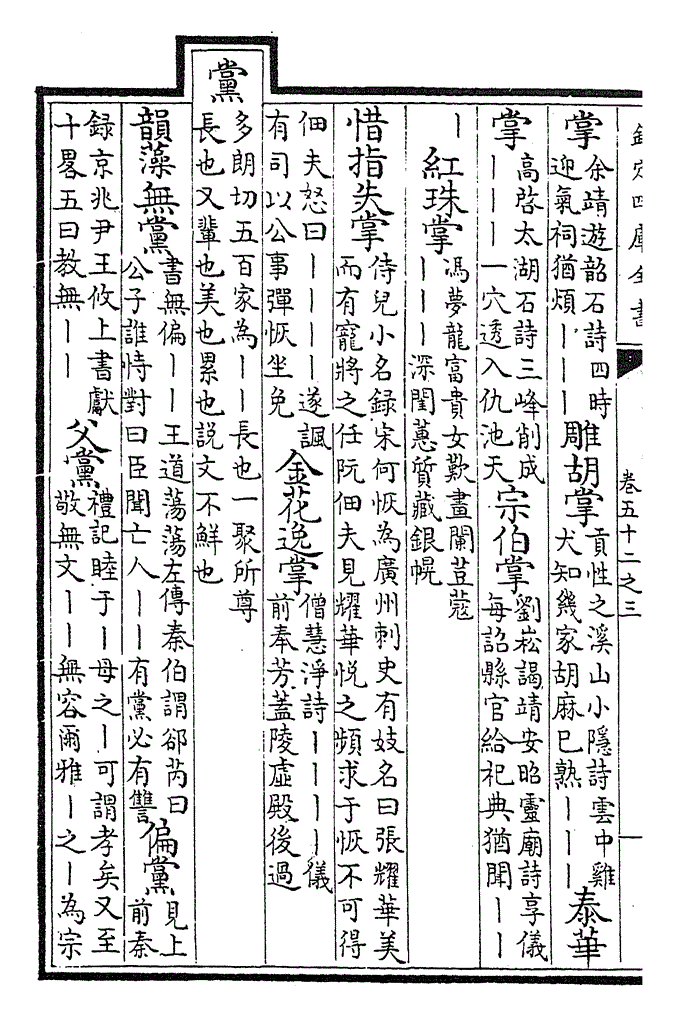 欽定四庫全書
卷五十二之三
一
掌
余靖遊韶石詩四時
迎氣祠猶煩｜｜｜
雕胡掌
貢性之溪山小隱詩雲中雞
犬知幾家胡麻已熟｜｜｜
泰華
掌
高啓太湖石詩三峰削成
｜｜｜一穴透入仇池天
宗伯掌
劉崧謁靖安昭靈廟詩享儀
每詔縣官給祀典猶聞｜｜
｜
紅珠掌
馮夢龍富貴女歎畫闌荳蔻
｜｜｜深閨蕙質藏銀幌
惜指失掌
侍兒小名録宋何恢為廣州刺史有妓名曰張耀華美
而有寵將之任阮佃夫見耀華悦之頻求于恢不可得
佃夫怒曰｜｜｜｜遂諷
有司以公事彈恢坐免
金花逸掌
僧慧淨詩｜｜｜｜儀
前奉芳蓋陵虛殿後過
黨
多朗切五百家為｜｜長也一聚所尊
長也又輩也美也累也説文不鮮也
韻藻無黨
書無偏｜｜王道蕩蕩左傳秦伯謂郤芮曰
公子誰恃對曰臣聞亡人｜｜有黨必有讐
偏黨
見上
前秦
録京兆尹王攸上書獻
十畧五曰教無｜｜
父黨
禮記睦于｜母之｜可謂孝矣又至
敬無文｜｜無容爾雅｜之｜為宗